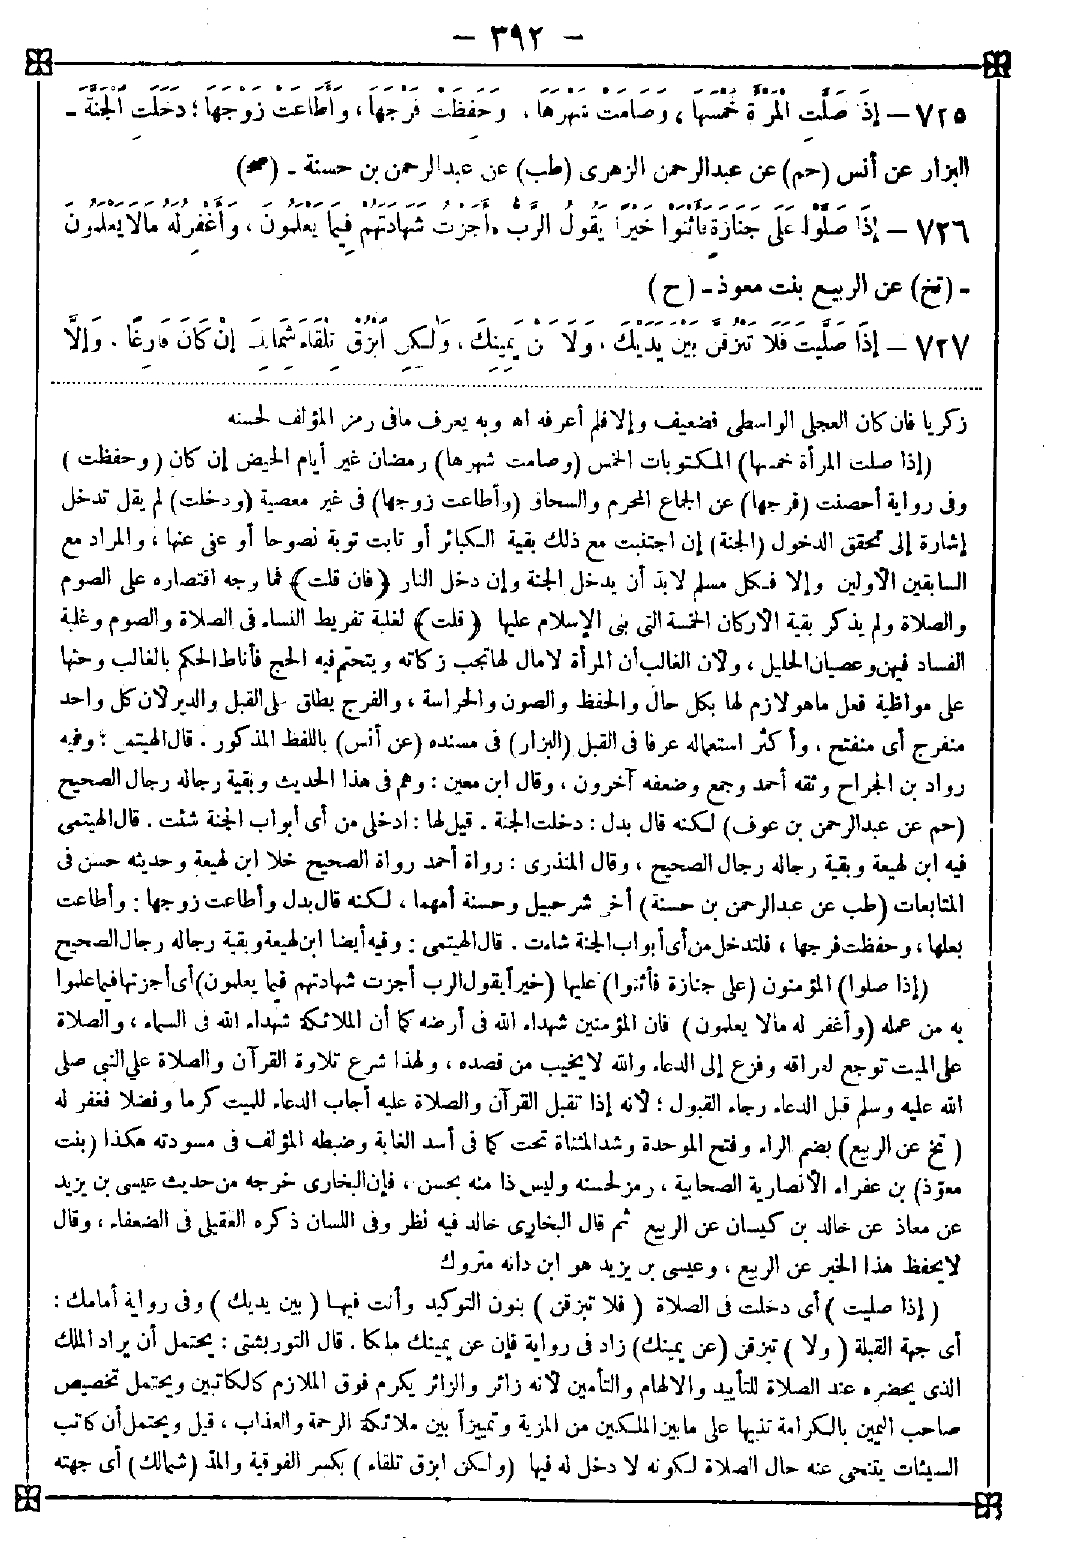 — ٣٩٢ —
٧٢٥ — إِذَا صَلَّتِ الْمَرْأَةُ خَمْسَهَا ، وَصَامَتْ شَهْرَهَا ، وَحَفِظَتْ فَرْجَهَا ، وَأَطَاعَتْ زَوْجَهَا ؛ دَخَلَتِ الْجَنَّةَ -
البزار عن أنس (حم) عن عبدالرحمن الزهرى (طب) عن عبدالرحمن بن حسنة - (صح)
٧٢٦ — إِذَا صَلَّوْا عَلَى جَنَازَةٍ فَأَثْنَوْا خَيْرًا يَقُولُ الرَّبُّ أَجَزْتُ شَهَادَتَهُمْ فِيمَا يَعْلَمُونَ ، وَأَغْفِرُ لَهُ مَالَا يَعْلَمُونَ
- (تخ) عن الربيع بنت معوذ - (ح)
٧٢٧ — إِذَا صَلَّيْتَ فَلَا تَبْزُقَنَّ بَيْنَ يَدَيْكَ ، وَلَا عَنْ يَمِينِكَ ، وَلٰكِنِ ابْزُقْ تِلْقَاءَ شِمَالِكَ إِنْ كَانَ فَارِغًا . وَإِلَّا
زكريا فان كان العجلى الواسطى فضعيف وإلا فلم أعرفه اه وبه يعرف مافى رمز المؤلف لحسنه
(إذا صلت المرأة خمسها) المكتوبات الخمس (وصامت شهرها) رمضان غير أيام الحيض إن كان (وحفظت)
وفى رواية أحصنت (فرجها) عن الجماع المحرم والسحاق (وأطاعت زوجها) فى غير معصية (ودخلت) لم يقل تدخل
إشارة إلى تحقق الدخول (الجنة) إن اجتنبت مع ذلك بقية الكبائر أو تابت توبة نصوحا أو عفى عنها ، والمراد مع
السابقين الأولين وإلا فكل مسلم لابد أن يدخل الجنة وإن دخل النار (فان قلت) فما وجه اقتصاره على الصوم
والصلاة ولم يذكر بقية الأركان الخمسة التى بنى الإسلام عليها (قلت) لغلبة تفريط النساء فى الصلاة والصوم وغلبة
الفساد فيهن وعصيان الحليل ، ولأن الغالب أن المرأة لامال لها تجب زكاته ويتحتم فيه الحج فأناط الحكم بالغالب وحثها
على مواظبة فعل ماهو لازم لها بكل حال والحفظ والصون والحراسة ، والفرج يطلق على القبل والدبر لأن كل واحد
منفرج أى منفتح ، وأكثر استعماله عرفا فى القبل (البزار) فى مسنده (عن أنس) باللفظ المذكور . قال الهيتمى : وفيه
رواد بن الجراح وثقه أحمد وجمع وضعفه آخرون ، وقال ابن معين : وهم فى هذا الحديث وبقية رجاله رجال الصحيح
(حم عن عبدالرحمن بن عوف) لكنه قال بدل : دخلت الجنة . قيل لها : ادخلى من أى أبواب الجنة شئت . قال الهيتمى
فيه ابن لهيعة وبقية رجاله رجال الصحيح ، وقال المنذرى : رواة أحمد رواة الصحيح خلا ابن لهيعة وحديثه حسن فى
المتابعات (طب عن عبدالرحمن بن حسنة) أخى شرحبيل وحسنة أمهما ، لكنه قال بدل وأطاعت زوجها : وأطاعت
بعلها ، وحفظت فرجها ، فلتدخل من أى أبواب الجنة شاءت . قال الهيتمى : وفيه أيضا ابن لهيعة وبقية رجاله رجال الصحيح
(إذا صلوا) المؤمنون (على جنازة فأثنوا) عليها (خيرا يقول الرب أجزت شهادتهم فيما يعلمون) أى أجزتها فيما علموا
به من عمله (وأغفر له مالا يعلمون) فان المؤمنين شهداء الله فى أرضه كما أن الملائكة شهداء الله فى السماء ، والصلاة
على الميت توجع لفراقه وفزع إلى الدعاء والله لا يخيب من قصده ، ولهذا شرع تلاوة القرآن والصلاة على النبي صلى
الله عليه وسلم قبل الدعاء رجاء القبول ؛ لأنه إذا تقبل القرآن والصلاة عليه أجاب الدعاء للميت كرما وفضلا فغفر له
(تخ عن الربيع) بضم الراء وفتح الموحدة وشد المثناة تحت كما فى أسد الغابة وضبطه المؤلف فى مسودته هكذا (بنت
معوّذ) بن عفراء الأنصارية الصحابية ، رمز لحسنه وليس ذا منه بحسن ، فإن البخارى خرجه من حديث عيسى بن يزيد
عن معاذ عن خالد بن كيسان عن الربيع ثم قال البخارى خالد فيه نظر وفى اللسان ذكره العقيلى فى الضعفاء ، وقال
لا يحفظ هذا الخبر عن الربيع ، وعيسى بن يزيد هو ابن دانه متروك
(إذا صليت) أى دخلت فى الصلاة (فلا تبزقن) بنون التوكيد وأنت فيها (بين يديك) وفى رواية أمامك :
أى جهة القبلة (ولا) تبزقن (عن يمينك) زاد فى رواية فإن عن يمينك ملكا . قال التوربشتى : يحتمل أن يراد الملك
الذى يحضره عند الصلاة للتأييد والالهام والتأمين لأنه زائر والزائر يكرم فوق الملازم كالكاتبين ويحتمل تخصيص
صاحب اليمين بالكرامة تنبيها على مابين الملكين من المزية وتمييزا بين ملائكة الرحمة والعذاب ، قيل ويحتمل أن كاتب
السيئات يتنحى عنه حال الصلاة لكونه لا دخل له فيها (ولكن ابزق تلقاء) بكسر الفوقية والمد (شمالك) أى جهته